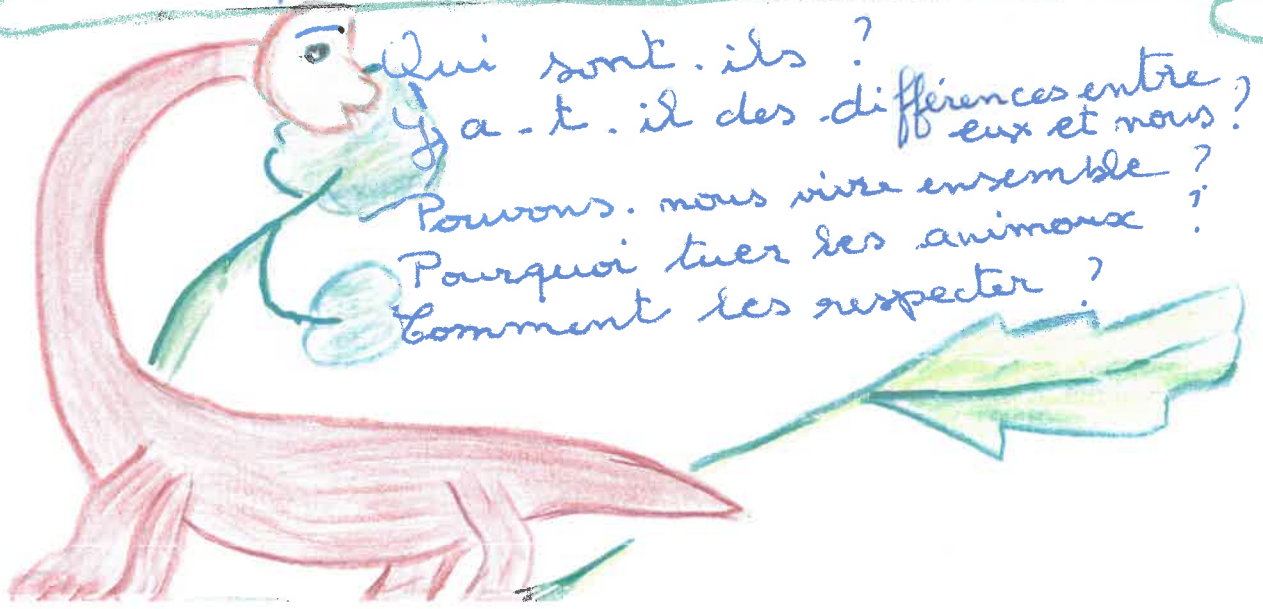 Qui sont-ils ?
Y a-t-il des différences entre
eux et nous ?
Pouvons-nous vivre ensemble ?
Pourquoi tuer les animaux ?
Comment les respecter ?